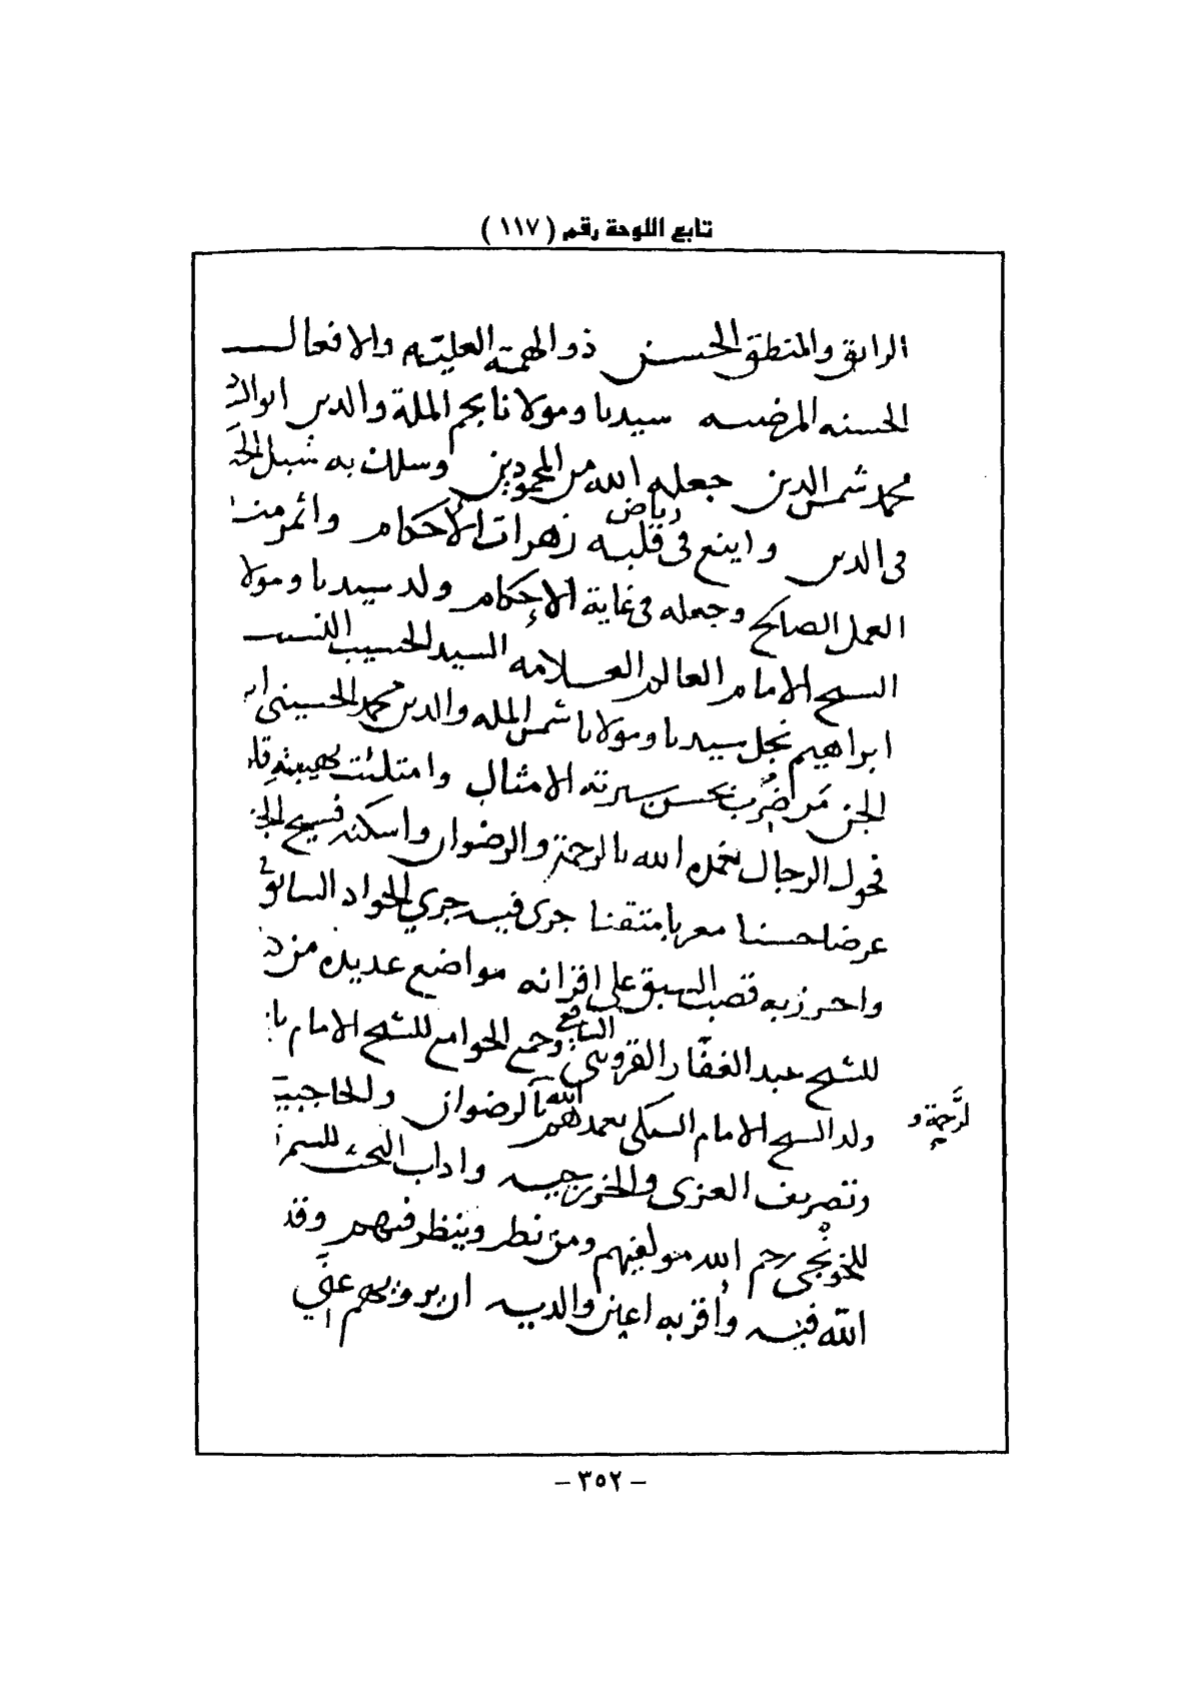 تابع اللوحة رقم ( ١١٧ )
الرايق والمنطق الحسن ذو الهمة العليه والافعال
الحسنه المرضيه سيدنا ومولانا نجم الملة والدين ابو
محمد شمس الدين جعله الله من المجودين وسلك به سبل
فى الدين واينع فى رياض قلبه زهرات الأحكام واثمر
العمل الصالح وجعله فى غاية الإحكام ولد سيدنا ومولا
السيخ الامام العالم العلامه السيد الحسيب النسيب
ابراهيم نجل سيدنا ومولانا شمس المله والدين محمد الحسينى
مَن ضُرب بحسن سيرته الامثال وامتلئت بهيبته
فحول الرجال تغمده الله بالرحمة والرضوان واسكنه فسيح
عرضا حسنا معربا متقنا جرى فيه جري الجواد السابق
واحرز به قصب السبق على اقرانه مواضع عديده من
للشيخ عبد الغفار القزوينى الشافعى وجمع الجوامع للشيخ الامام
ولد الشيخ الامام السبكى تغمدهم الله بالرحمة و الرضوان والحاجبية
وتصريف العزى والخزرجيه واداب البحث
للخونجى رحم الله مولفيهم ومن نظر وينظر فيهم وقد
الله فيه واقر به اعين والديه ان يرويهم عنّي
- ٣٥٢ -